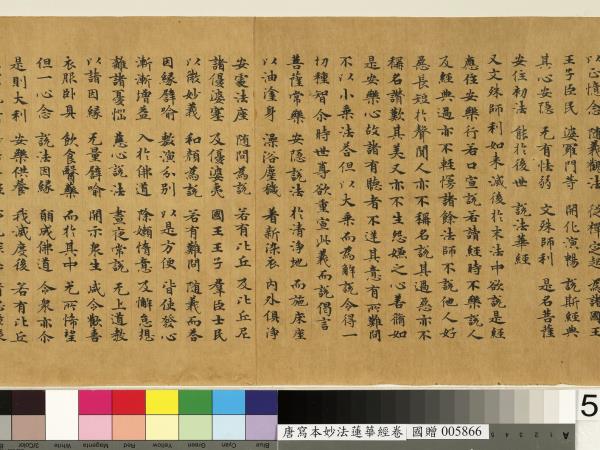 以正憶念　隨義觀法　從禪定起　為諸國王
王子臣民　婆羅門等　開化演暢　說斯經典
其心安隱　无有怯弱　文殊師利　是名菩薩
安住初法　能於後世　說法華經
又文殊師利如来滅後於末法中欲說是經
應住安樂行若口宣說若讀經時不樂說人
及經典過亦不輕慢諸餘法師不說他人好
惡長短於聲聞人亦不稱名說其過惡亦不
稱名讚歎其美又亦不生怨嫌之心善脩如
是安樂心故諸有聽者不逆其意有所難問
不以小乘法荅但以大乘而為解說令得一
切種智尒時世尊欲重宣此義而說偈言
菩薩常樂　安隱說法　於清淨地　而施床座
以油塗身　澡浴塵穢　著新淨衣　內外俱淨
安處法座　隨問為說　若有比丘　及比丘尼
諸優婆塞　及優婆夷　國王王子　羣臣士民
以微妙義　和顏為說　若有難問　隨義而荅
因緣譬喻　敷演分別　以是方便　皆使發心
漸漸增益　入於佛道　除嬾惰意　及懈怠想
離諸憂惱　慈心說法　晝夜常說　无上道教
以諸因緣　无量譬喻　開示衆生　咸令歡喜
衣服卧具　飲食醫藥　而於其中　无所悕望
但一心念　說法因緣　願成佛道　令衆亦尒
是則大利　安樂供養　我滅度後　若有比丘
唐寫本妙法蓮華經卷　國贈 005866
3/Color
White
Magenta
Red
Yellow
Green
Cyan
Blue
A
5